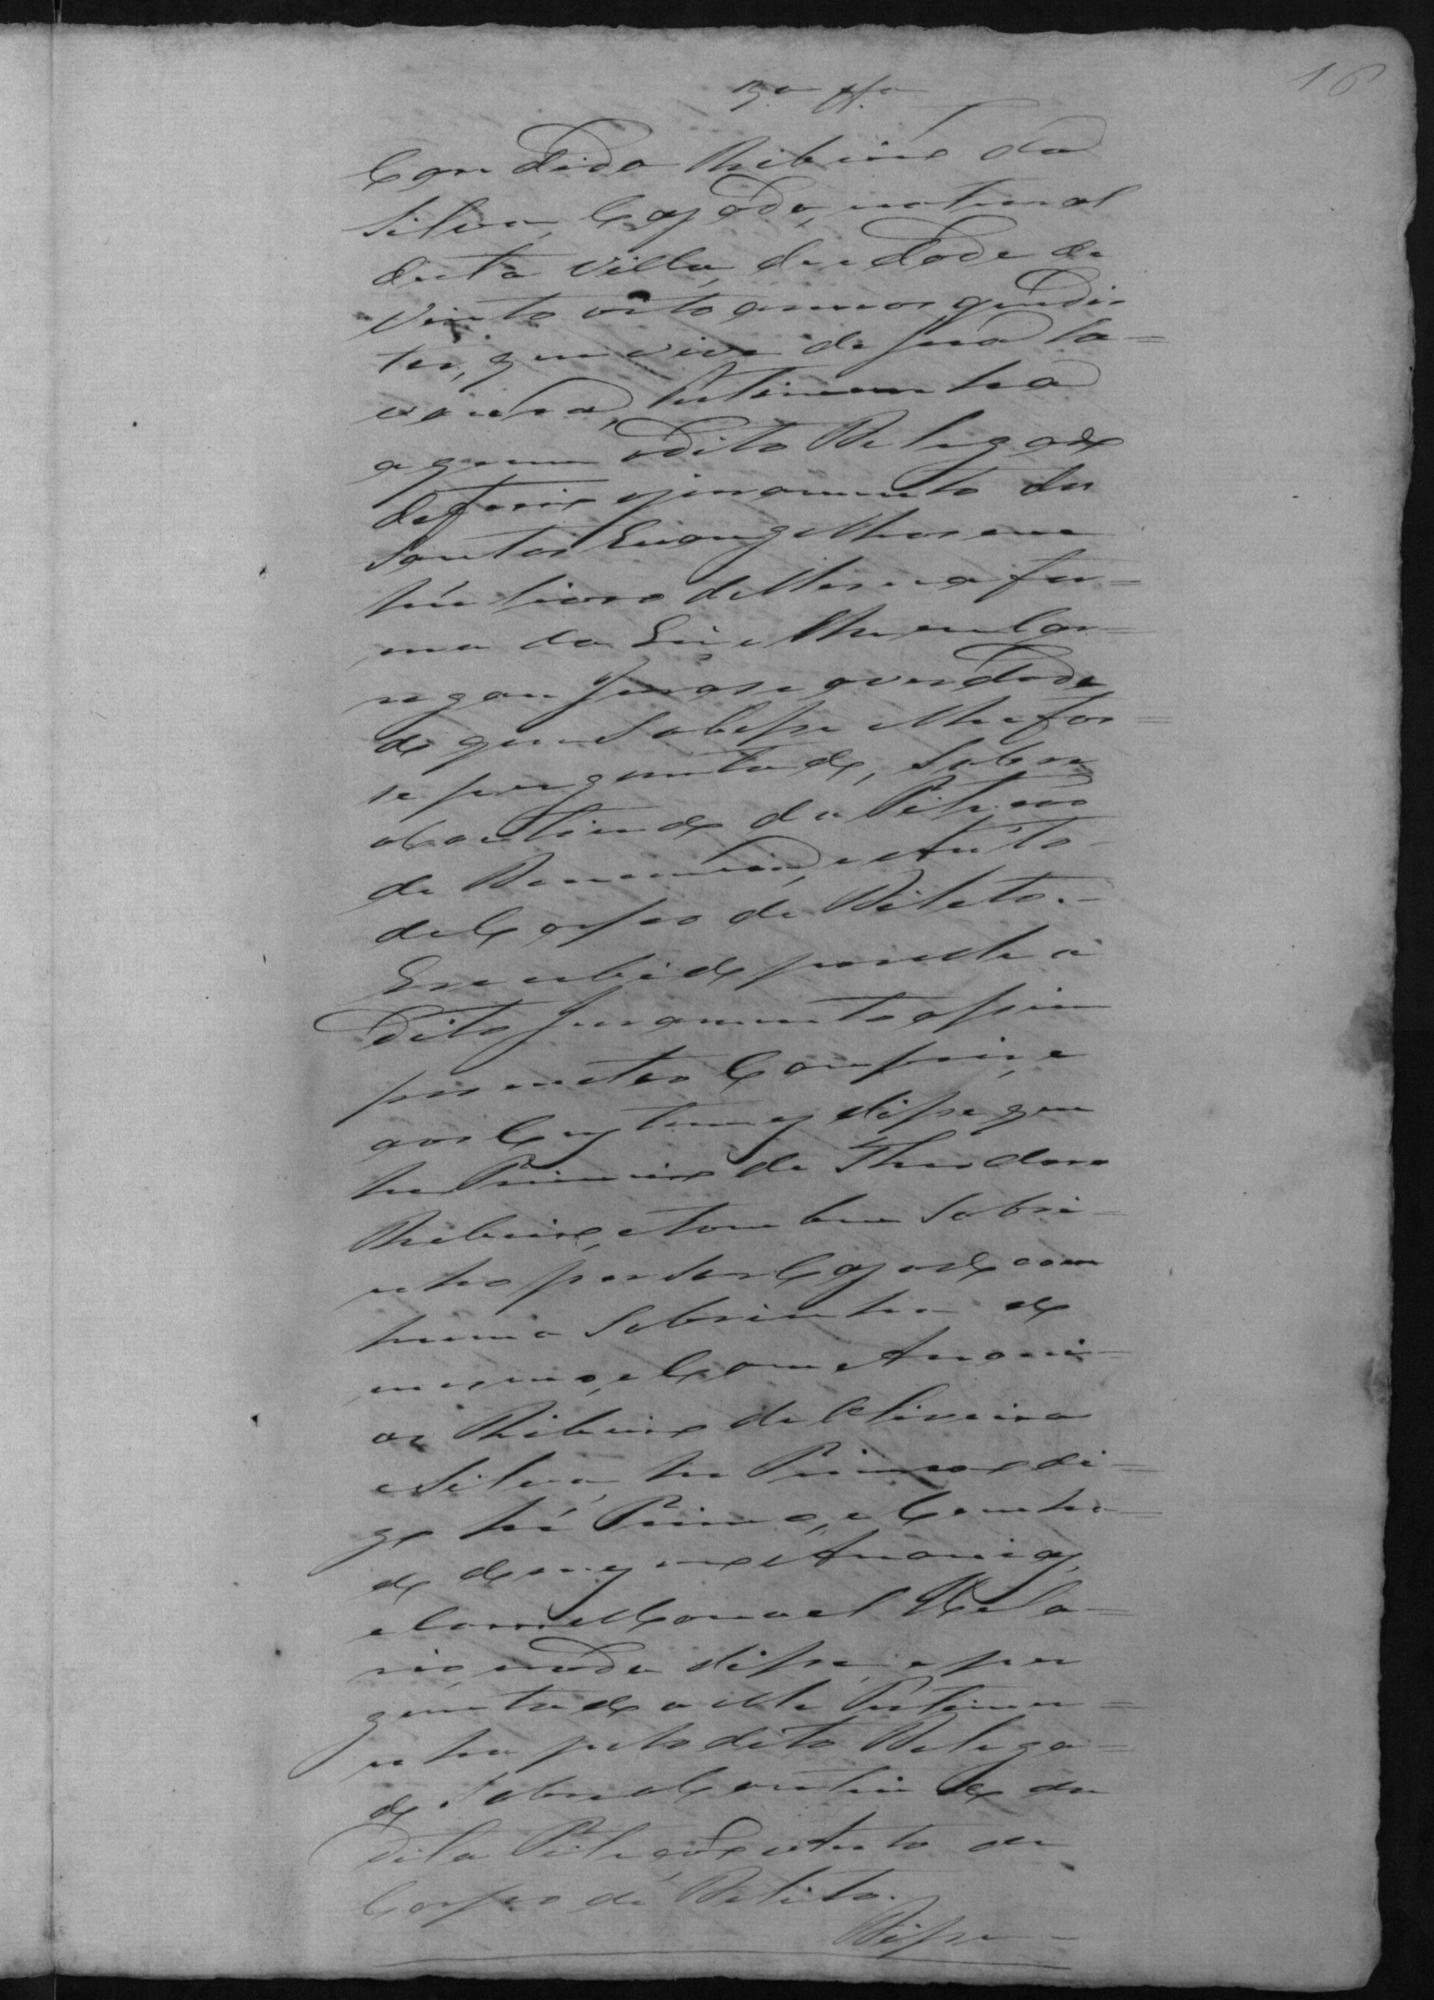 16
3.ª T.ª
Candido Ribeiro da
Silva, Cazado, natural
desta Villa, de idade de
Vinte oito annos que dis
se, que vive de sua la=
voura, Testimunha
aquem o dito Delegado
deferio o juramento dos
Santos Evangelhos em
hum livro delles na for=
ma da Lei e lhe encar=
regou jurase a verdade
do que Soubesse e lhe fos=
se perguntado, Sobre
o Contiudo da Petição
de Denuncia, e Auto
de Corpo de Delicto.
E recebido por elle o
dito Juramento assim
prometeo Comprir, e
aos Custumes disse que
he Primo de Theodoro
Ribeiro, e tambem Sobri-
nho por ser Cazado com
huma Sobrinha do
mesmo, e Com Anani-
as Ribeiro de Oliveira
e Silva, he Primo di=
go hé Primo, e Cunha-
do do mesmo Ananias,
e Com Manoel Hila=
rio, nada disse, e per
guntado a elle Testimu=
nha pelo dito Delega=
do Sobre o Contiudo da
dita Petição e Auto de
Corpo de Delito.
Disse